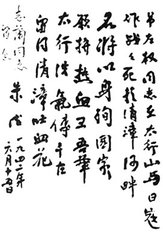 吊左权同志在太行山与日寇
作战々死於清漳河畔
名将以身殉國家
愿拚热血卫吾華
太行浩氣傳千古
留得清漳吐血花
志蘭同志
留念
朱德
一九四二年
六月十五日